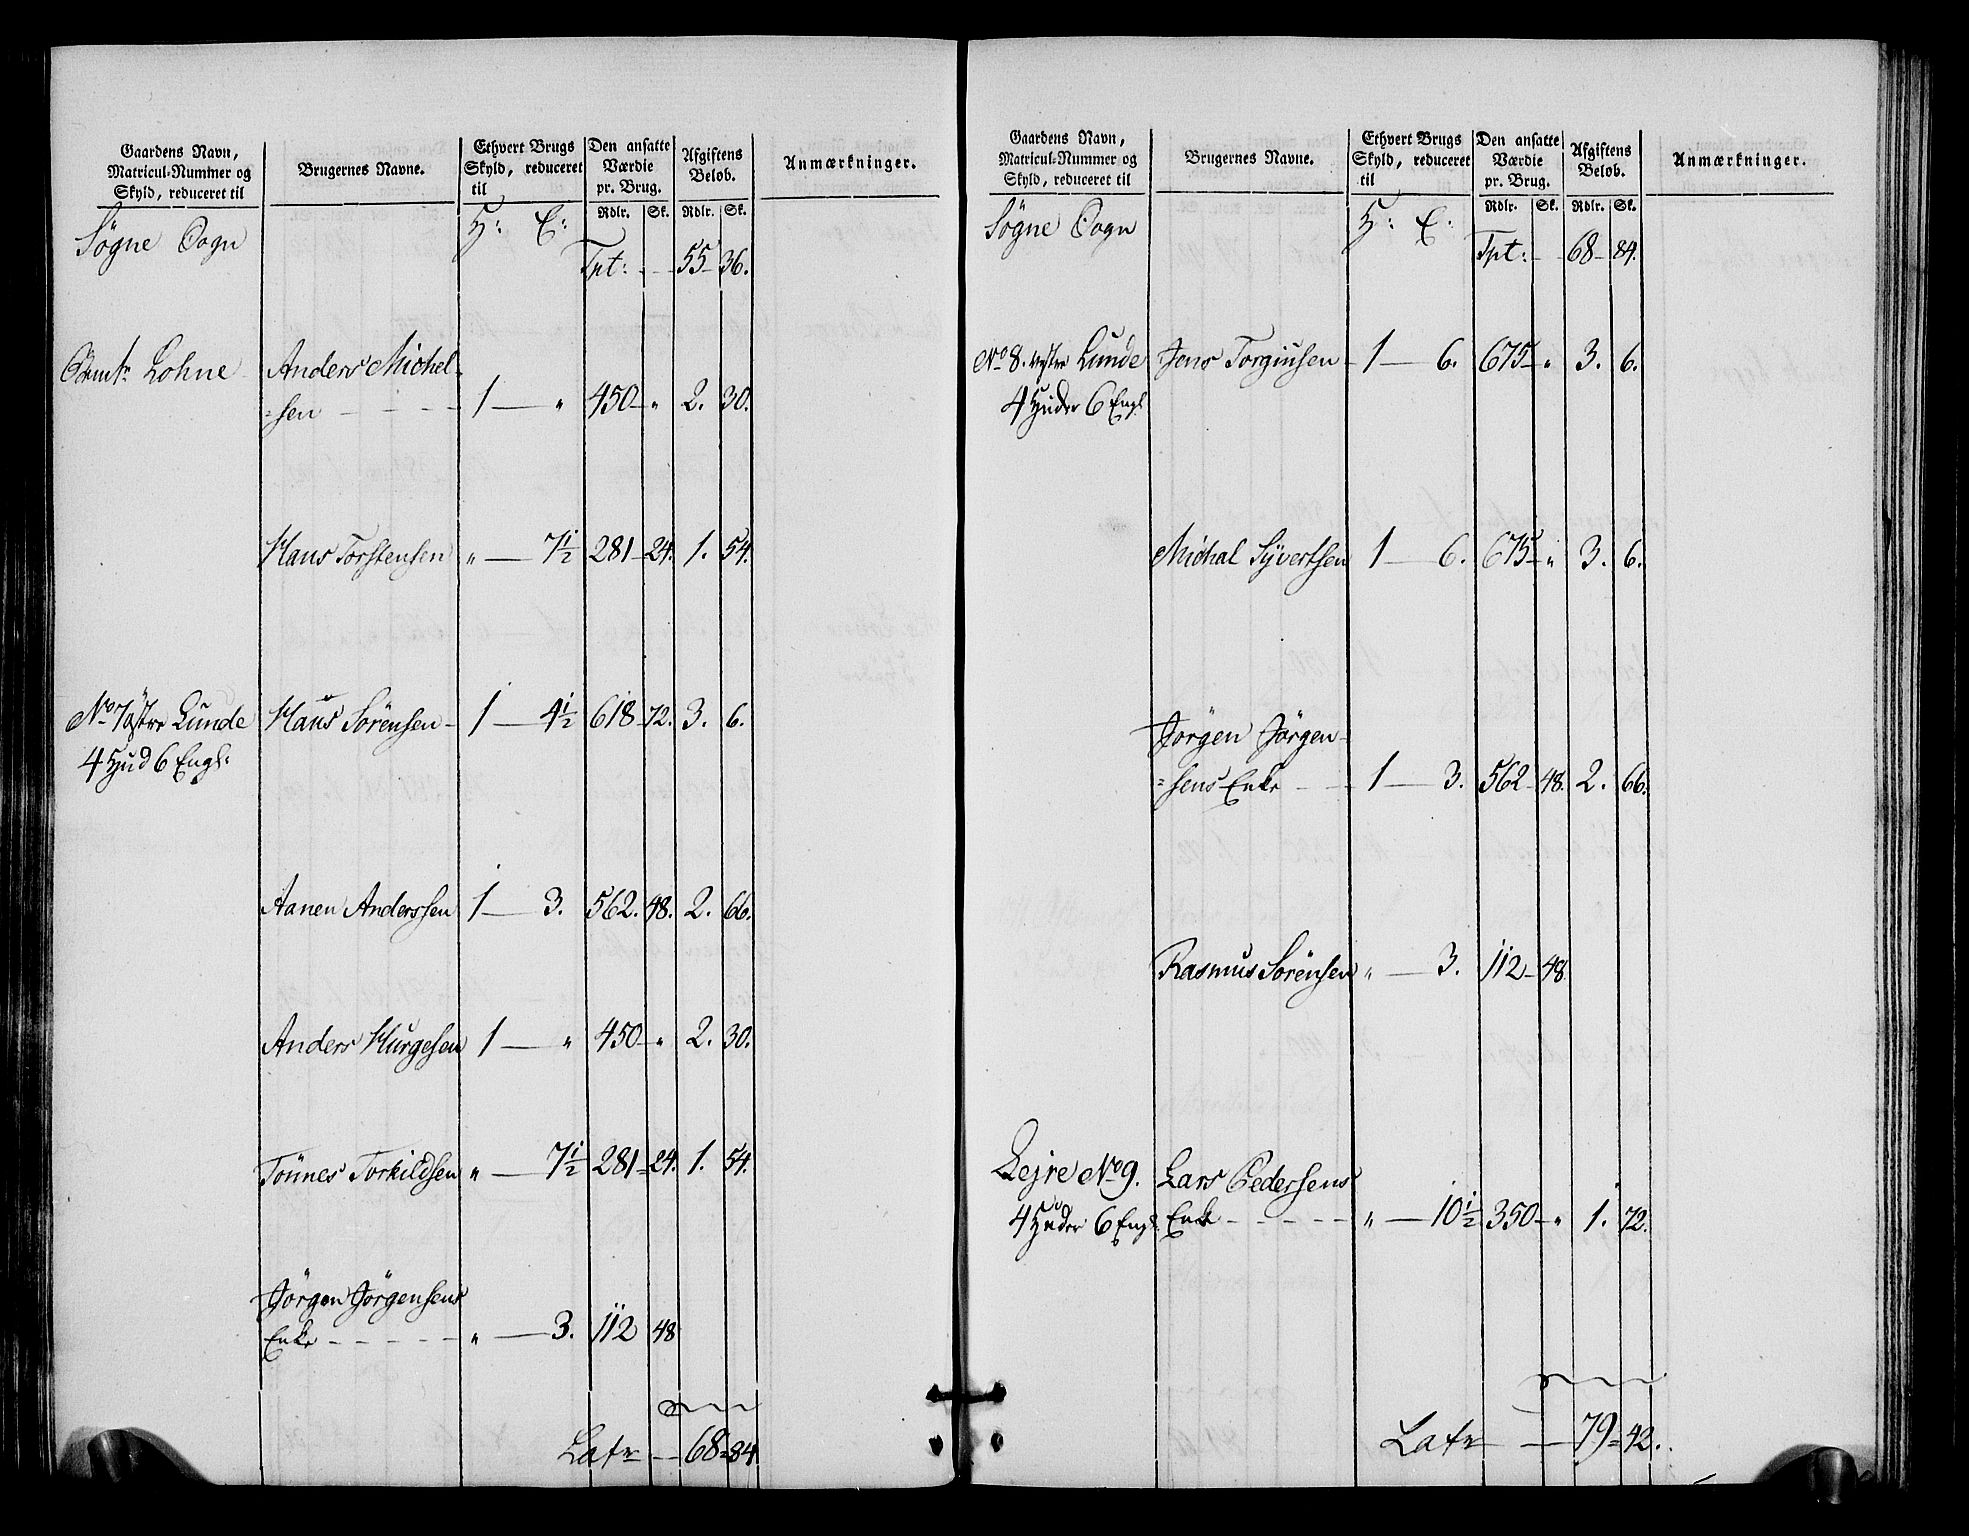 Gaardens Navn,
Matricul-Nummer og
Skyld, reduceret til
Brugernes Navne.
Ethvert Brugs
Skyld, reduceret
til
Den ansatte
Værdie
pr. Brug.
Afgiftens
Beløb.
Anmærkninger.
Rdlr. Sk. Rdlr. Sk.
Søgne Sogn H: E:
Tpt: - - 55 - 36.
Lohne Anders Michel-
=sen - - - - 1 — " 450 - " 2. 30.
Hans Torstensen " — 7½ 281 - 24. 1. 54.
No 7 østre Lunde Hans Sörensen - 1 — 4½ 618 - 72. 3. 6.
4 Hud 6 Engl:
Aanen Anderssen 1 — 3. 562. 48. 2. 66.
Anders Hurgesen 1 — " 450 - " 2. 30.
Tönnes Torkildsen " — 7½ 281 - 24. 1. 54.
Jörgen Jörgensens
Enke - - - - - " — 3. 112 48
Latr — 68 = 84
Gaardens Navn,
Matricul-Nummer og
Skyld, reduceret til
Brugernes Navne.
Ethvert Brugs
Skyld, reduceret
til
Den ansatte
Værdie
pr. Brug.
Afgiftens
Beløb.
Anmærkninger.
Rdlr. Sk. Rdlr. Sk.
Søgne Sogn H: E:
Tpt: - - 68 - 84.
No 8. vestre Lunde Jens Torgiusen - 1 — 6. 675 - " 3. 6.
4 Huder 6 Engl
Michal Syvertsen 1 — 6. 675 - " 3. 6.
Jörgen Jörgen-
=sens Enke - - - 1 — 3. 562 - 48. 2. 66.
Rasmus Sörensen " — 3. 112 - 48.
Lejre No 9. Lars Pedersens
4 Huder 6 Engl. Enke - - - - - " — 10½ 350 - " 1. 72.
Latr — 79 = 42.